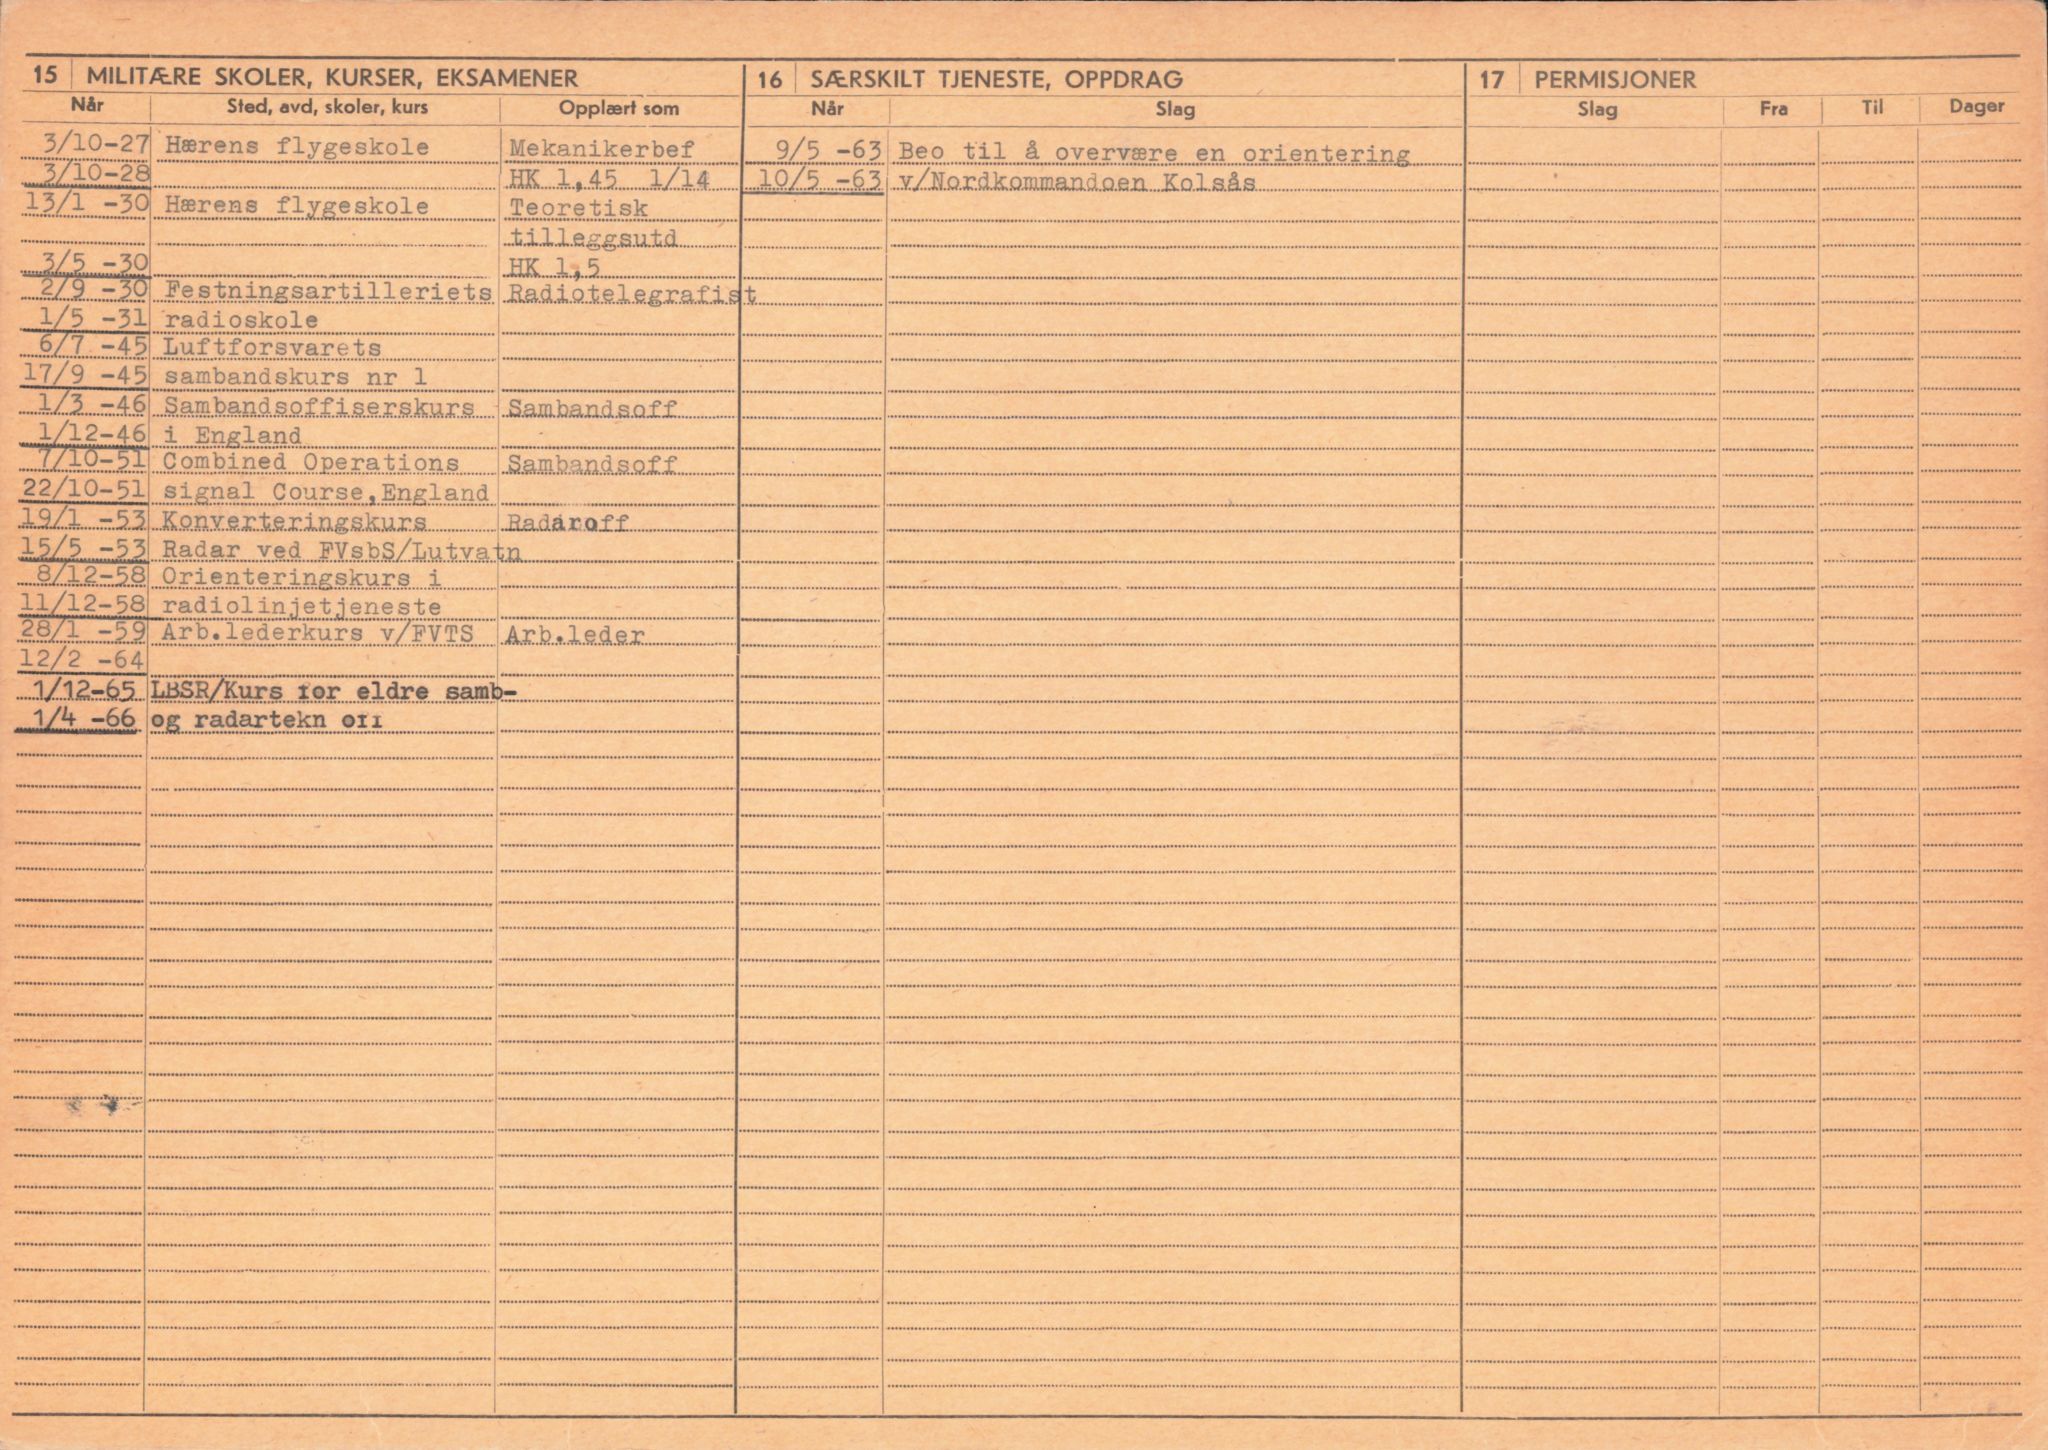 15 MILITÆRE SKOLER, KURSER, EKSAMENER
Når Sted, avd, skoler, kurs Opplært som
3/10-27 Hærens flygeskole Mekanikerbef
3/10-28 HK 1,45 1/14
13/1 -30 Hærens flygeskole Teoretisk
tilleggsutd
3/5 -30 HK 1,5
2/9 -30 Festningsartilleriets Radiotelegrafist
1/5 -31 radioskole
6/7 -45 Luftforsvarets
17/9 -45 sambandskurs nr 1
1/3 -46 Sambandsoffiserskurs Sambandsoff
1/12-46 i England
7/10-51 Combined Operations Sambandsoff
22/10-51 signal Course,England
19/1 -53 Konverteringskurs Radaroff
15/5 -53 Radar ved FVsbS/Lutvatn
8/12-58 Orienteringskurs i
11/12-58 radiolinjetjeneste
28/1 -59 Arb.lederkurs v/FVTS Arb.leder
12/2 -64
1/12-65 LBSR/Kurs for eldre samb-
1/4 -66 og radartekn off
16 SÆRSKILT TJENESTE, OPPDRAG
Når Slag
9/5 -63 Beo til å overvære en orientering
10/5 -63 v/Nordkommandoen Kolsås
17 PERMISJONER
Slag Fra Til Dager